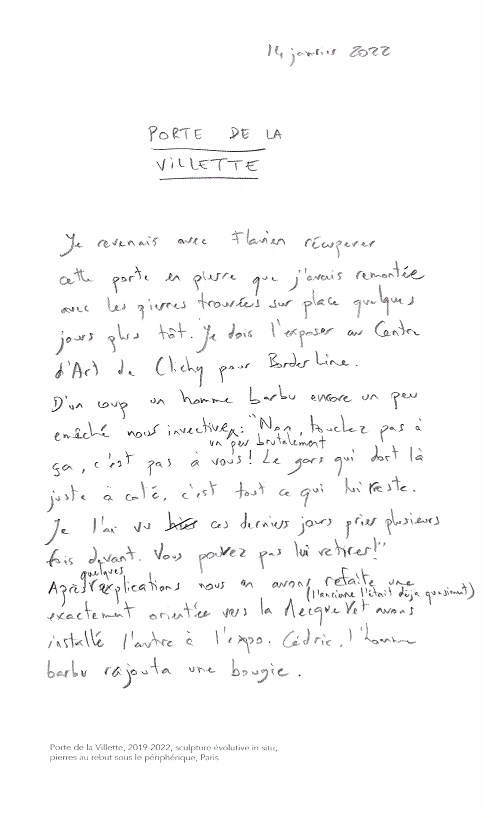 14 janvier 2022
PORTE DE LA
ViLLETTE
Je revenais avec Flavien récuperer
cette porte en pierre que j'avais remontée
avec les pierres trouvées sur place quelques
jours plus tôt. Je dois l'exposer au Centre
d'Art de Clichy pour Borderline.
D'un coup un homme barbu encore un peu
eméché nous invective : "Non, touchez pas à
un peu brutalement
ça, c'est pas à vous ! Le gars qui dort là
juste à coté, c'est tout ce qui lui reste.
Je l'ai vu hier ces derniers jours prier plusieurs
fois devant. Vous pouvez pas lui retirer !"
quelques
Après explications nous en avons refaite une
(l'ancienne l'était déja quasiment)
exactement orientée vers la Mecque et avons
installé l'autre à l'expo. Cédric, l'homme
barbu rajouta une bougie.
Porte de la Villette, 2019-2022, sculpture évolutive in situ,
pierres au rebut sous le périphérique, Paris